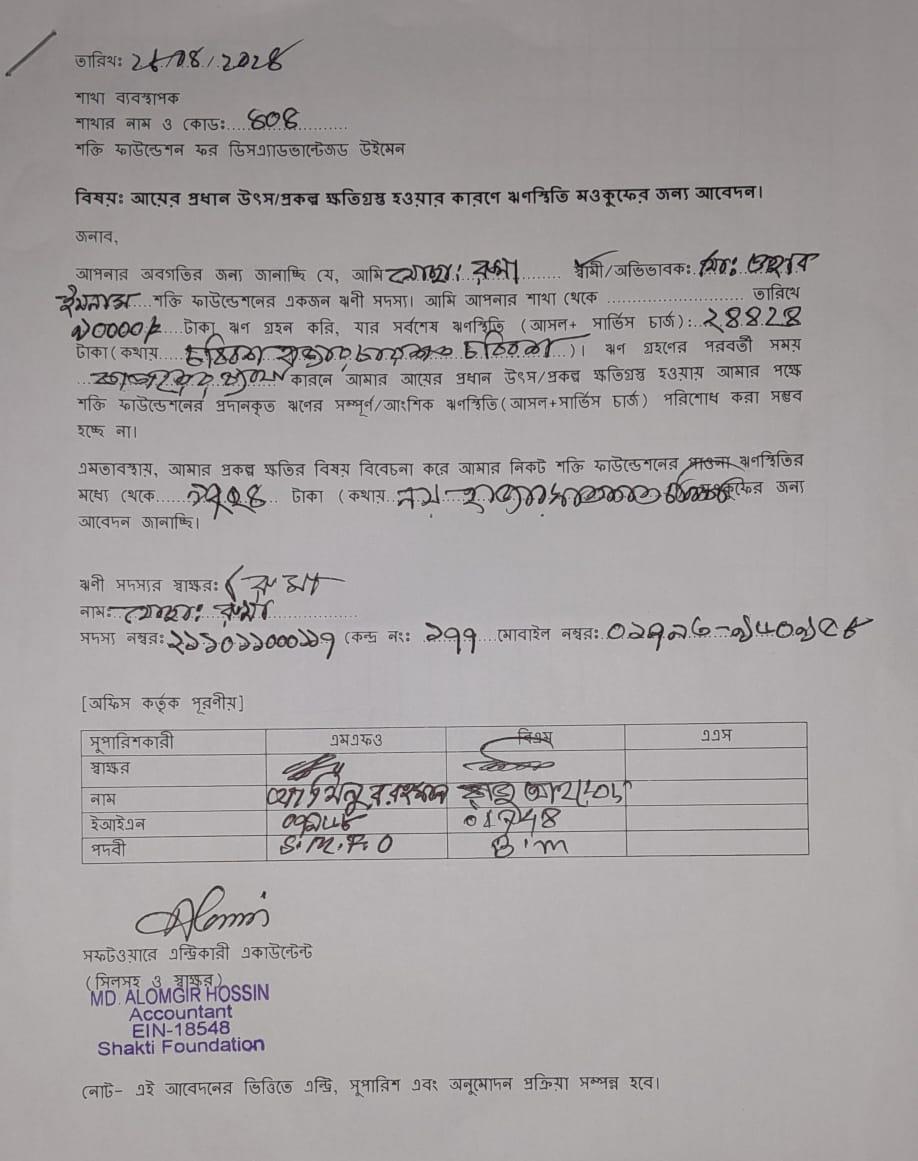 তারিখঃ
শাখা ব্যবস্থাপক
শাখার নাম ও কোডঃ.... ৪০৪
শক্তি ফাউন্ডেশন ফর ডিসএ্যাডভান্টেজড উইমেন
বিষয়ঃ আয়ের প্রধান উৎস/প্রকল্প ক্ষতিগ্রস্থ হওয়ার কারণে ঋণস্থিতি মওকুফের জন্য আবেদন।
জনাব,
আপনার অবগতির জন্য জানাচ্ছি যে, আমি মোছাঃ রুমা স্বামী/অভিভাবকঃ মোঃ
শক্তি ফাউন্ডেশনের একজন ঋণী সদস্য। আমি আপনার শাখা থেকে .......................... তারিখে
৯০০০০/= টাকা ঋণ গ্রহন করি, যার সর্বশেষ ঋণস্থিতি (আসল+ সার্ভিস চার্জ):. ২৪৪২৪
টাকা (কথায় চব্বিশ হাজার চারশত চব্বিশ)। ঋণ গ্রহনের পরবর্তী সময়
কারনে আমার আয়ের প্রধান উৎস/প্রকল্প ক্ষতিগ্রস্থ হওয়ায় আমার পক্ষে
শক্তি ফাউন্ডেশনের প্রদানকৃত ঋণের সম্পূর্ন/আংশিক ঋণস্থিতি (আসল+সার্ভিস চার্জ) পরিশোধ করা সম্ভব
হচ্ছে না।
এমতাবস্থায়, আমার প্রকল্প ক্ষতির বিষয় বিবেচনা করে আমার নিকট শক্তি ফাউন্ডেশনের পাওনা ঋণস্থিতির
মধ্যে থেকে টাকা (কথায় নয় হাজার মওকুফের জন্য
আবেদন জানাচ্ছি।
ঋনী সদস্যর স্বাক্ষরঃ রুমা
নামঃ মোছাঃ রুমা
সদস্য নম্বরঃ ২১১০১১০০০১১৭ কেন্দ্র নং: ১৭৭ মোবাইল নম্বরঃ
[অফিস কর্তৃক পূরনীয়]
সুপারিশকারী এমএফও বিএম এএস
স্বাক্ষর
নাম
ইআইএন
পদবী S.M.F.O B.M
Alomgir
সফটওয়্যারে এন্ট্রিকারী একাউন্টেন্ট
(সিলসহ ও স্বাক্ষর)
MD. ALOMGIR HOSSIN
Accountant
EIN-18548
Shakti Foundation
নোট- এই আবেদনের ভিত্তিতে এন্ট্রি, সুপারিশ এবং অনুমোদন প্রক্রিয়া সম্পন্ন হবে।